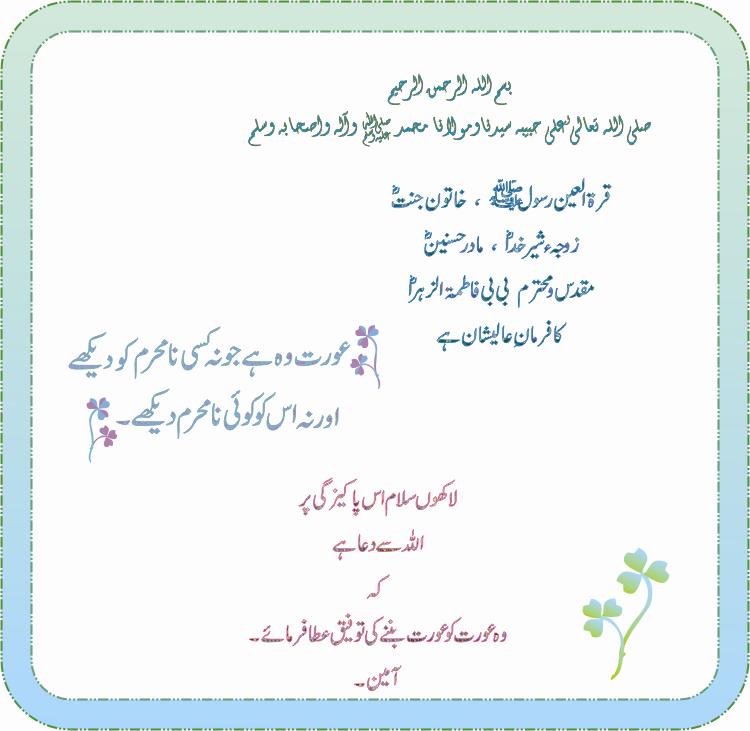 بسم اللہ الرحمن الرحیم
صلی اللہ تعالیٰ علیٰ حبیبہ سیدنا و مولانا محمد ﷺ وآلہ واصحابہ وسلم
قرۃ العین رسول ﷺ ، خاتون جنتؓ
زوجہء شیر خداؓ ، مادر حسنینؓ
مقدس و محترم بی بی فاطمۃ الزہراؓ
کا فرمانِ عالیشان ہے
عورت وہ ہے جو نہ کسی نامحرم کو دیکھے
اور نہ اس کو کوئی نامحرم دیکھے۔
لاکھوں سلام اس پاکیزگی پر
اللہ سے دعا ہے
کہ
وہ عورت کو عورت بننے کی توفیق عطا فرمائے۔
آمین۔